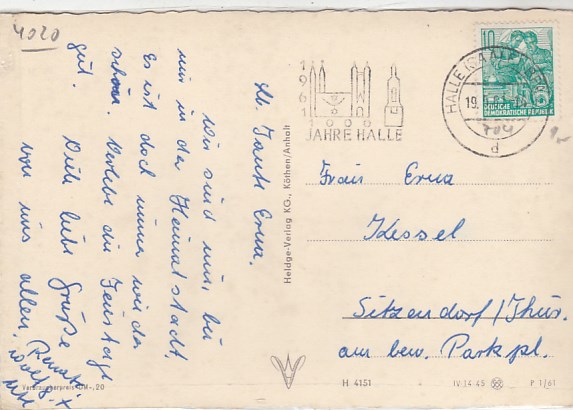 4020
Lb. Tante Erna.
Wir sind nun, bei
uns in der Heimatstadt,
Es ist doch immer wieder
schön. Verlebt die Feiertage
gut.
Viele liebe Grüße
von uns allen
Renate
Wolfg. +
Verbraucherpreis DM -,20
Heldge-Verlag KG., Köthen/Anhalt
1961
1000
JAHRE HALLE
HALLE (SAALE)
19.
d
10
DEUTSCHE
DEMOKRATISCHE REPUBLIK
704
Frau Erna
Kessel
Sitzendorf/Thür.
am bew. Parkpl.
H 4151
IV-14-45
P 1/61